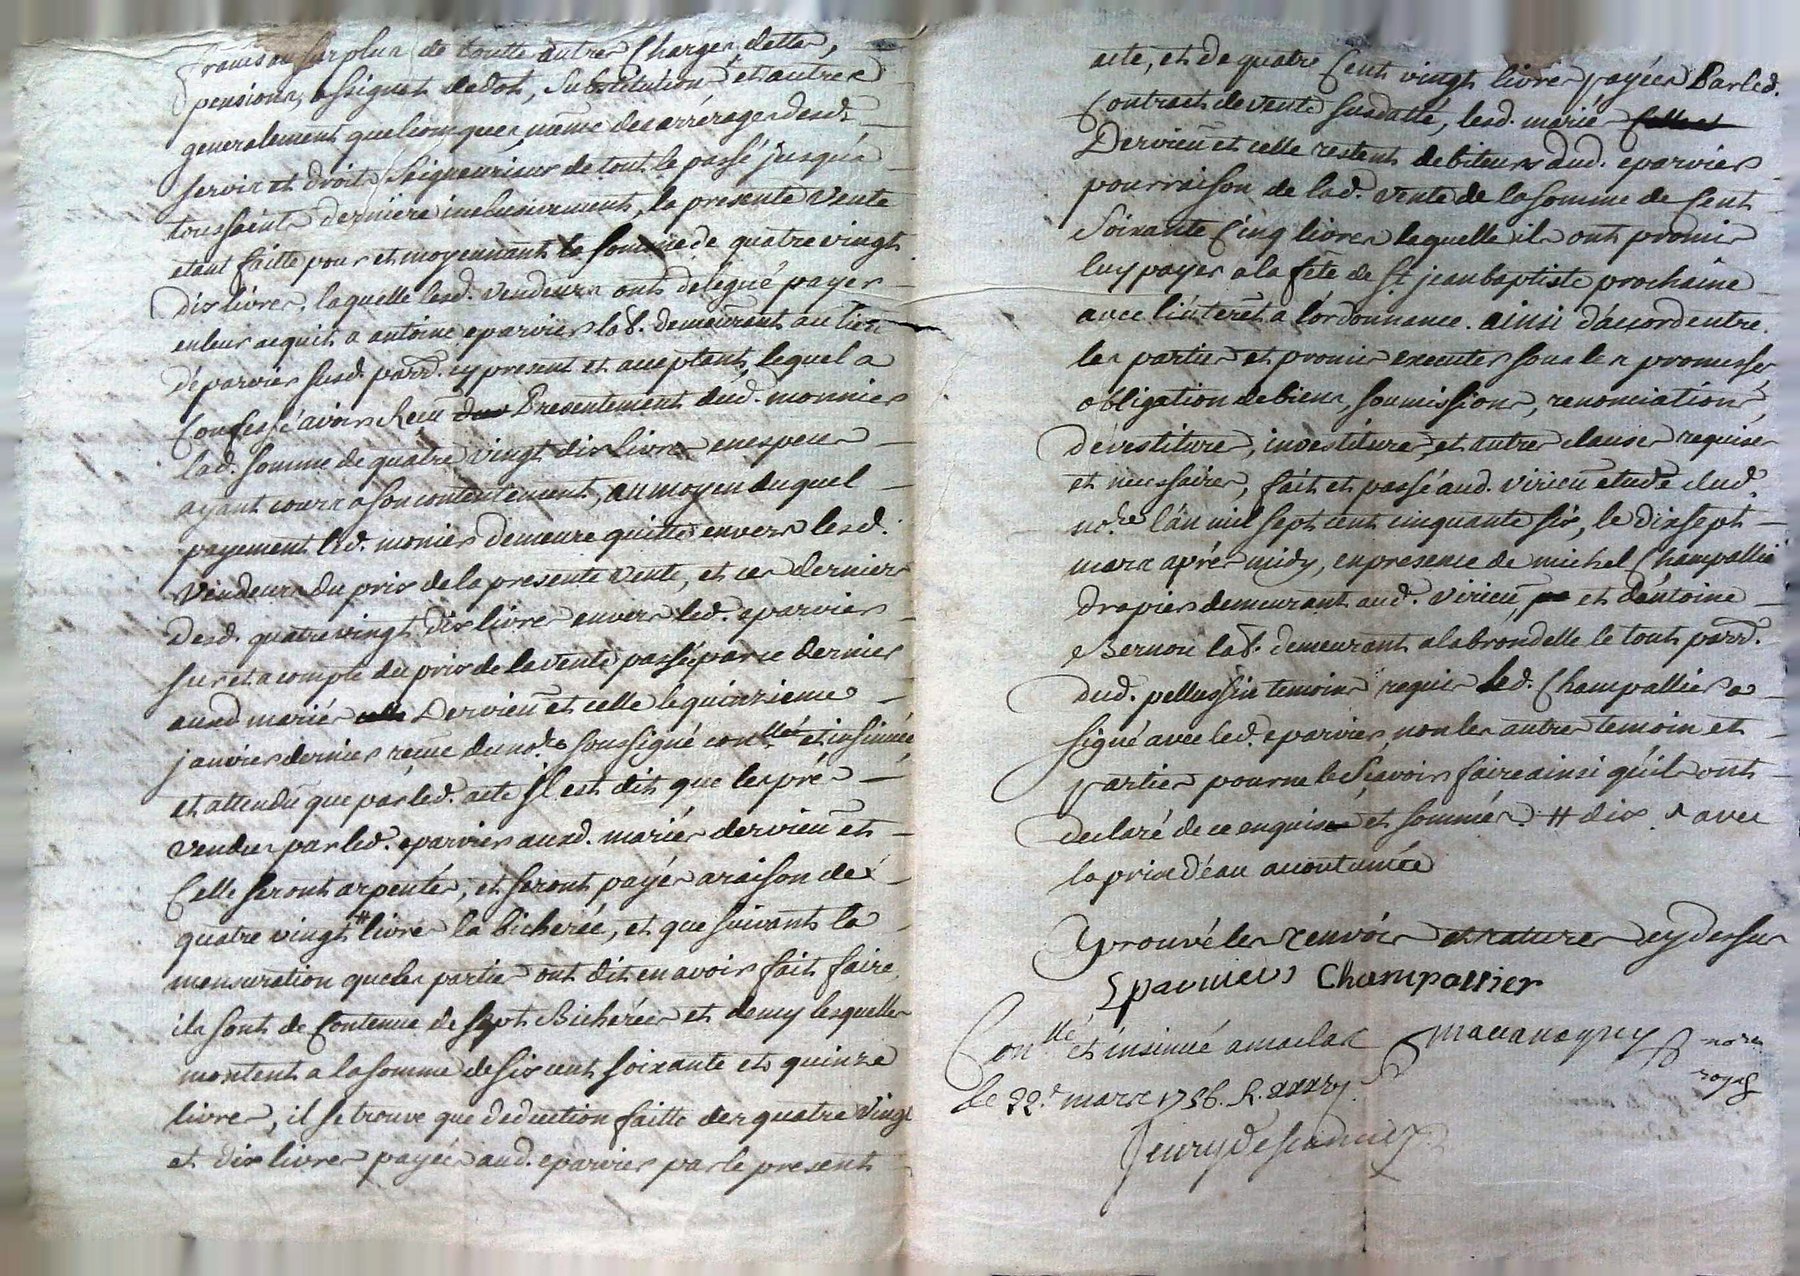 francs au surplus de toutte autres Charges dettes,
pensions, assignat dedot, substitution et autres
generalement quelconques, même des arrérages desd.
servis et droits seigneuriaux de tout le passé jusqu'a
toussaints derniere inclusivement, la presente vente
etant faitte pour et moyennant la somme de quatre vingt
dix livres, laquelle lesd. vendeurs ont delegué payer
en leur acquit a antoine eparvier lab. demeurant au lieu
d'eparvier susd. parr. cy present et acceptant, lequel a
Confessé avoir Receu Presentement dud. monnier
lad. somme de quatre vingt dix livres en especes
ayant cours a son contentement, au moyen duquel
payement led. monier demeure quitte envers lesd.
vendeurs du prix de la presente vente, et ces derniers
desd. quatre vingt dix livres envers led. eparvier
sur et a compte du prix de la vente passé par ce dernier
auxd mariés Dervieu et celle le quinzieme
janvier dernier reçue du nore. soussigné conllé et insinuée
et attendu que par led. acte il est dit que les prés
vendus par led. eparvier auxd. mariés dervieu et
Celle seront arpentés, et seront payés a raison de
quatre vingt # livres la bicherée, et que suivant la
mensuration que les partie ont dit en avoir fait faire
ils sont de Contenue de sept Bicherées et demy lesquelles
montent a la somme de six cent soixante et quinze
livres, il se trouve que deduction faitte des quatre vingt
et dix livres payées aud. eparvier par le present
acte, et de quatre Cent vingt livres payées Par led.
Contract de vente susdatté, lesd. mariés
Dervieu et celle restent debiteurs dud. eparvier
pour raison de lad. vente de la somme de Cent
Soixante Cinq livres laquelle ils ont promis
luy payer a la fête de St jean baptiste prochaine
avec l'interêt a l'ordonnance. ainsi d'accord entre
les parties et promis executer sous les promesses
obligation de biens, soumissions, renonciations,
dévestiture, investiture, et autres clauses requises
et necessaires, fait et passé aud. virieu etude dud.
nore. l'an mil sept cent cinquante six, le dixsept
mars après midy, en presence de michel Champallier
drapier demeurant aud. virieu et d'antoine
Bernou lab. demeurant a la brondelle le tout parr.
dud. pellussin temoins requis led. Champallier a
signé avec led. eparvier, non les autres temoin et
parties pour ne le Sçavoir faire ainsi qu'ils ont
declaré de ce enquis et sommés. # dix. avec
la prise d'eau accoutumée
Aprouvé les renvois et ratures cy dessus
Eparvier Champallier
Conllé et insinué a maclas
nore. royal
le 22e. mars 1756. R.